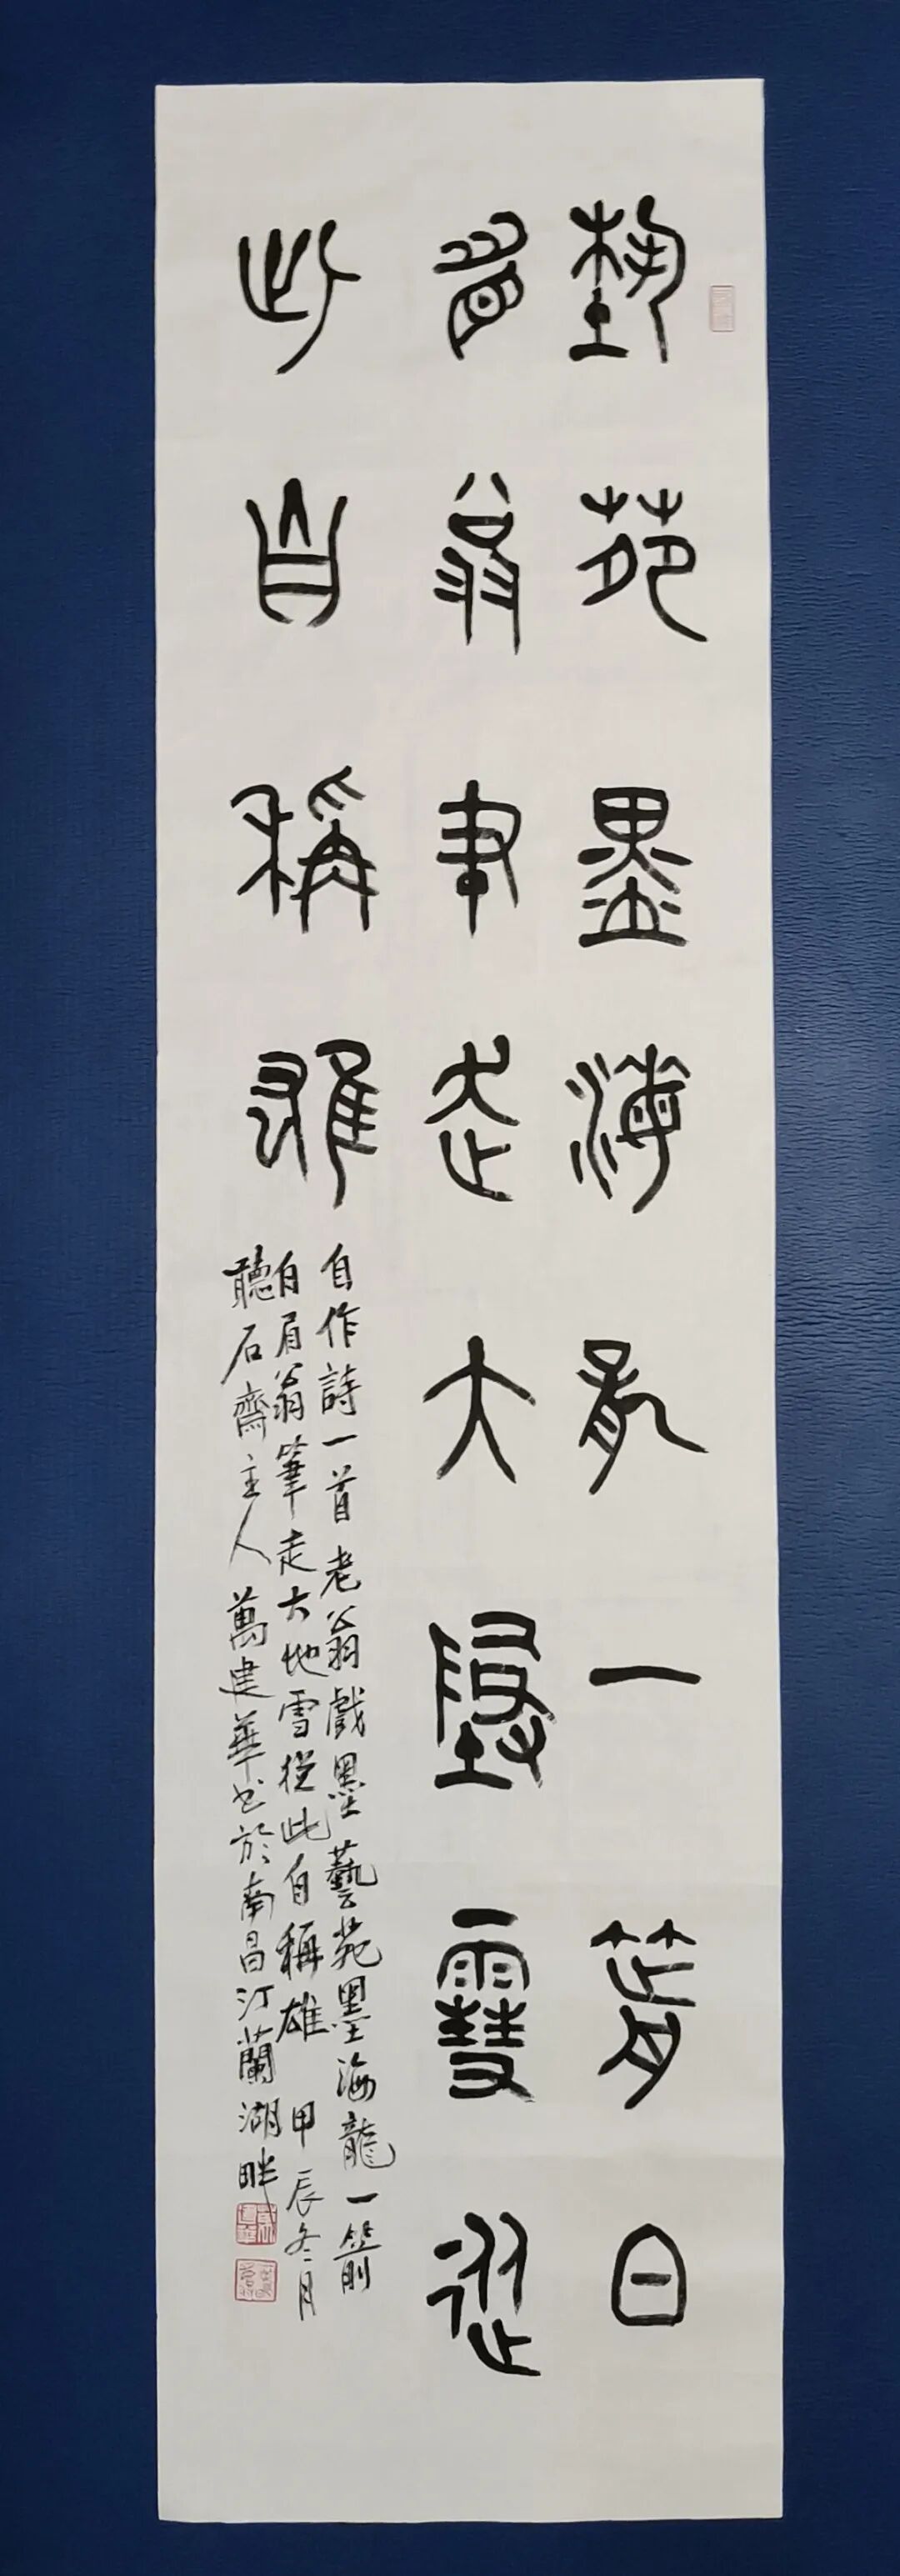 藝苑墨海龍一箭白
眉翁筆走大地雪從
此自稱雄
自作詩一首老翁戲墨藝苑墨海龍一箭
白眉翁筆走大地雪從此自稱雄 甲辰冬月
聽石齋主人萬建華书於南昌汀蘭湖畔